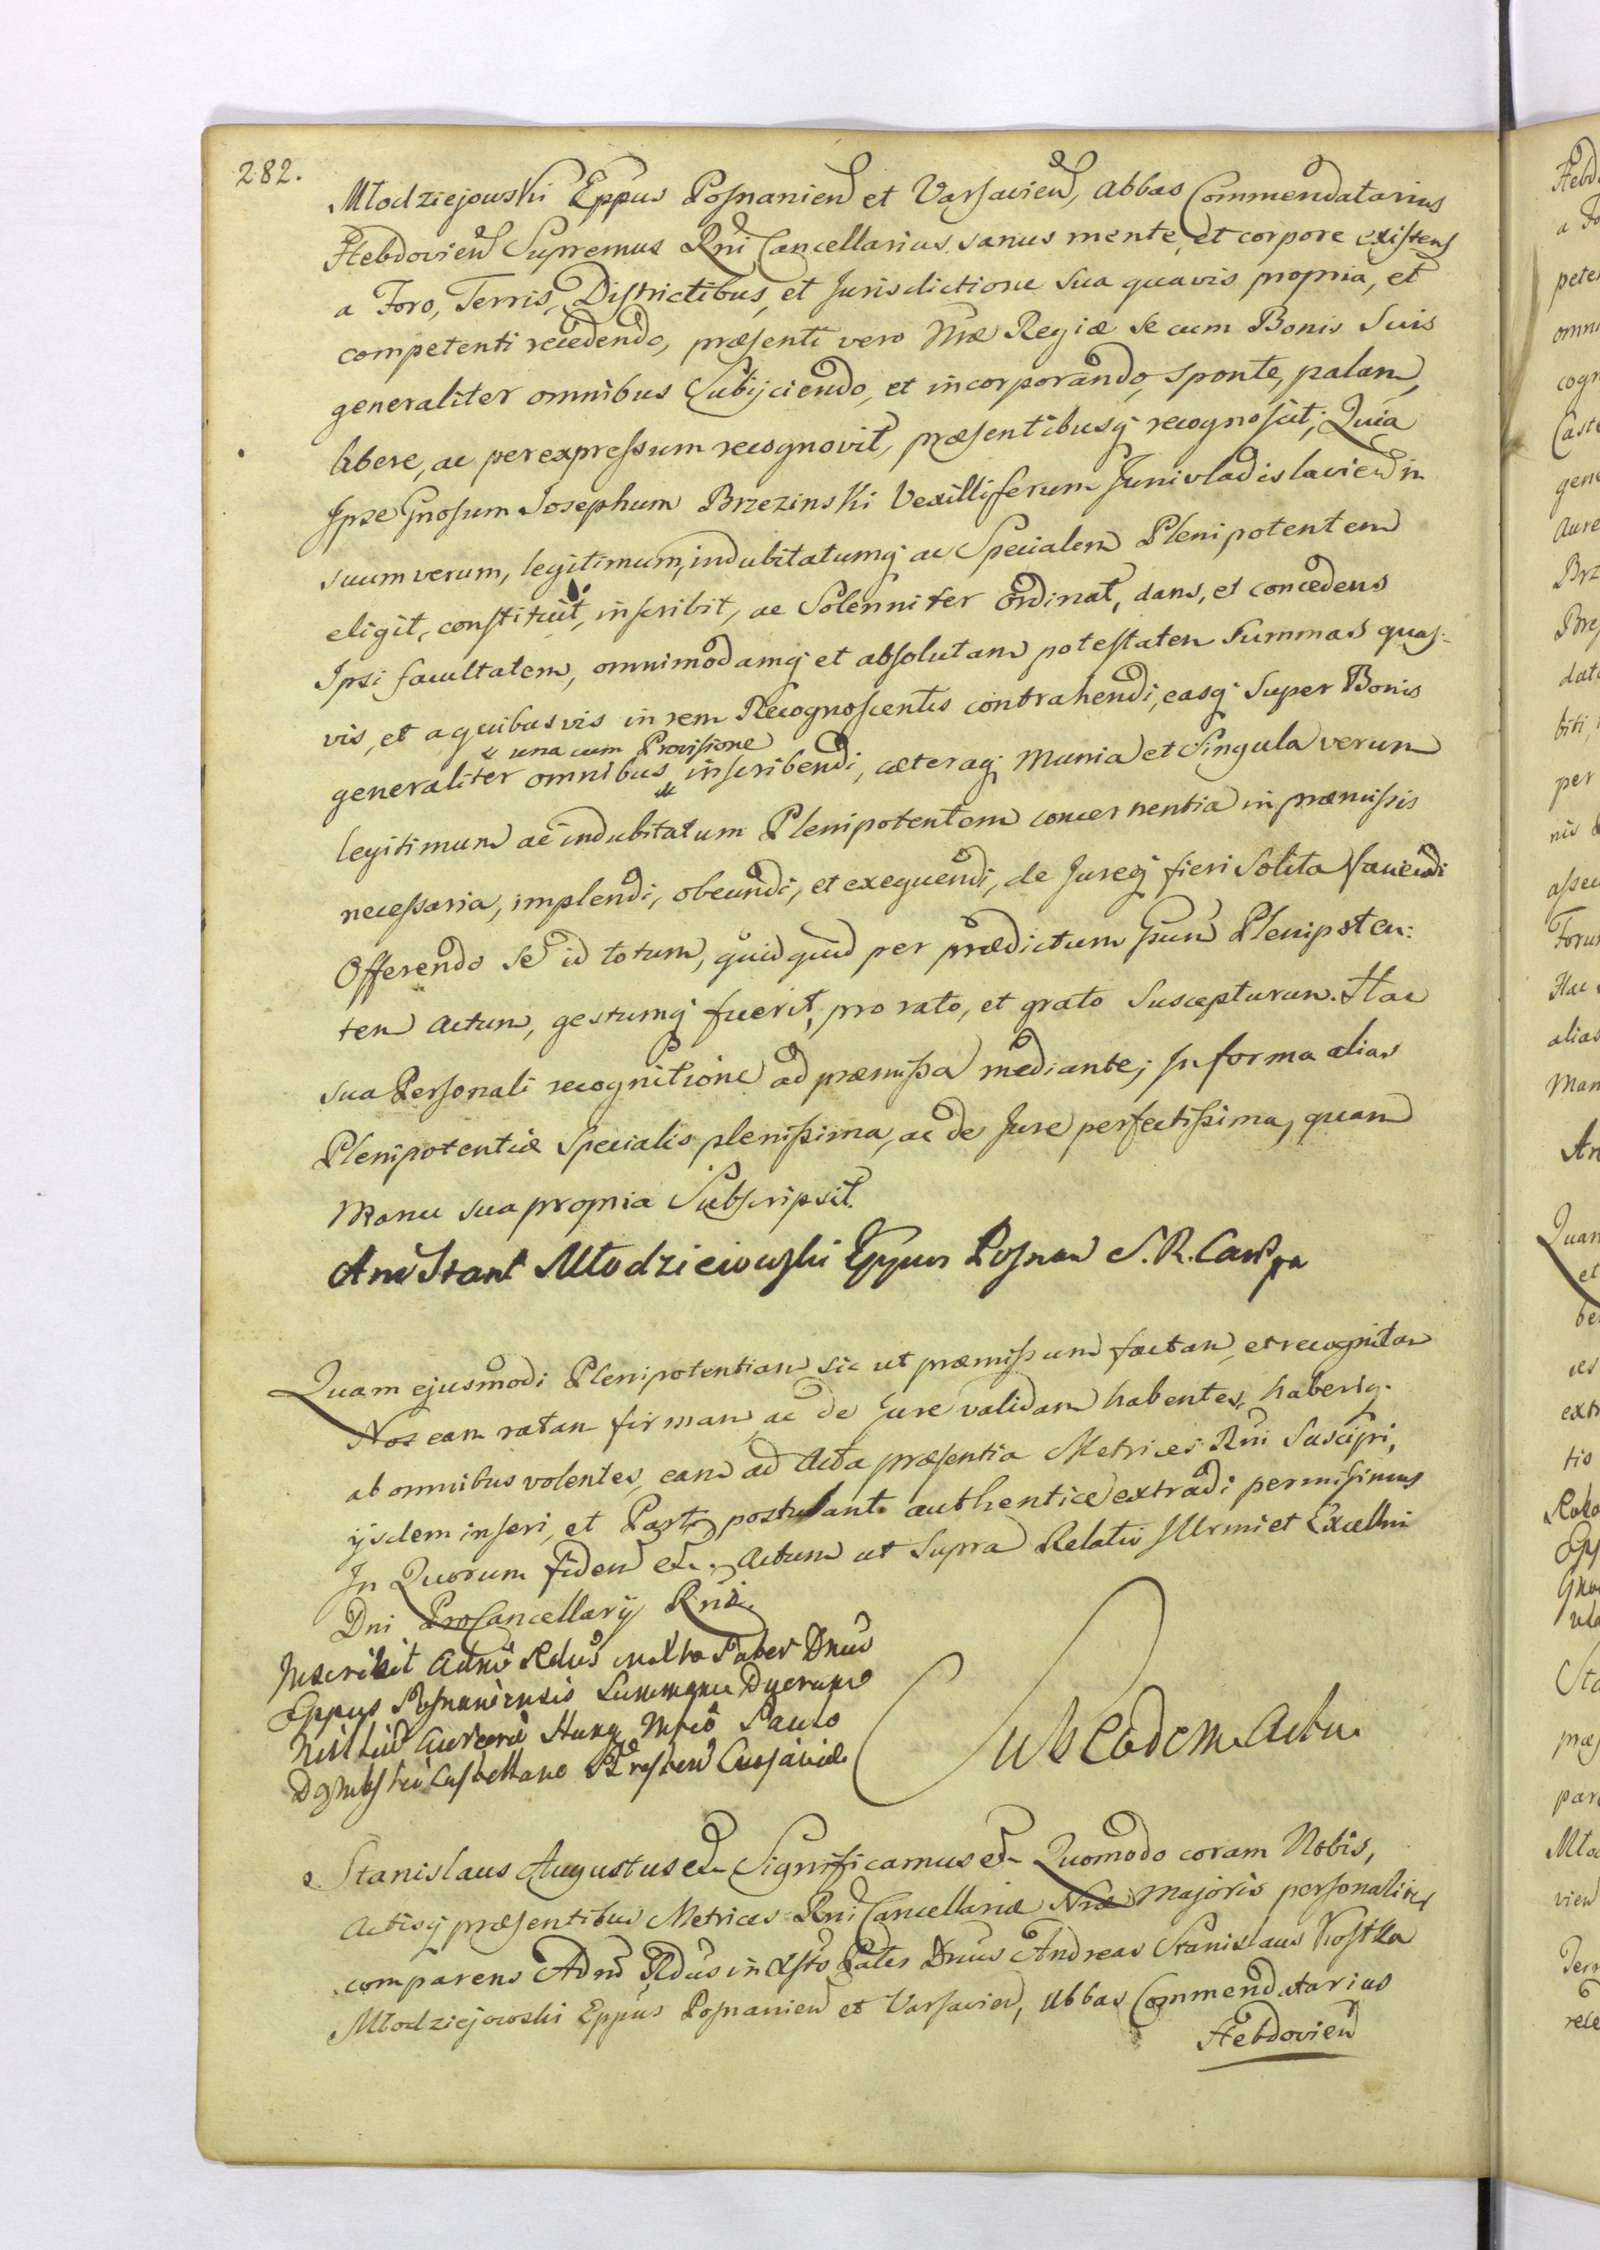 282.
Młodziejowski Eppus Posnanien et Varsavien, Abbas Commendatarius
Hebdovien Supremus Rni Cancellarius sanus mente, et corpore existens
a Foro, Terris, Districtibus, et Jurisdictione sua quavis propria, et
competenti recedendo, præsenti vero Mæ Regiæ se cum Bonis Suis
generaliter omnibus Subijciendo, et incorporando, sponte, palam,
libere, ac per expressum recognovit, præsentibusq recognoscit; Quia
Ipse Gnosum Josephum Brzezinski Vexilliferum Junivladislavien in
suum verum, legitimum, indubitatumq ac Specialem Plenipotentem
eligit, constituit, inscribit, ac Solenniter ordinat, dans, et concedens
Ipsi facultatem, omnimodamq et absolutam potestatem Summas quas-
vis, et a quibusvis in rem Recognoscentis contrahendi, easq Super Bonis
una cum Provisione
generaliter omnibus inscribendi, cæteraq Munia et Singula verum
legitimum ac indubitatum Plenipotentem concernentia in præmissis
necessaria, implendi, obeundi, et exequendi, de Jureq fieri Solita faciendi
Offerendo Se id totum, quidquid per prædictum Gsum Plenipoten:
tem actum, gestumq fuerit, pro rato, et grato Suscepturum. Hac
sua Personali recognitione ad præmissa mediante; In forma alias
Plenipotentiæ Specialis plenissima, ac de Jure perfectissima, quam
Manu sua propria Subscripsit.
And Stan Młodzieiowski Eppus Posnan S. R. Canc
Quam ejusmodi Plenipotentiam sic ut præmissum factam, et recognitam
Nos eam ratam firmam, ac de Jure validam habentes, haberiq
ab omnibus volentes, eam ad Acta præsentia Metrices Rni Suscipi,
ijsdem inseri, et Parti postulanti authentice extradi permisimus
In Quorum fidem etc. Actum ut Supra Relatio Illrmi et Excellmi
Dni ProCancellarij Rni.
Inscribit Admo Rdus in Xto Pater Dnus
Eppus Posnaniensis Summam Duorum
Millium Aureorum Hung Mfico Paulo
Dąmbski Castellano Bresten Cujaviæ
Sub Eodem Actu.
Stanislaus Augustus etc Significamus etc Quomodo coram Nobis,
Actisq præsentibus Metrices Rni Cancellariæ Nræ Majoris personaliter
comparens Admo Rdus in Xsto Pater Dnus Andreas Stanislaus Kostka
Młodziejowski Eppus Posnanien et Varsavien, Abbas Commendatarius
Hebdovien